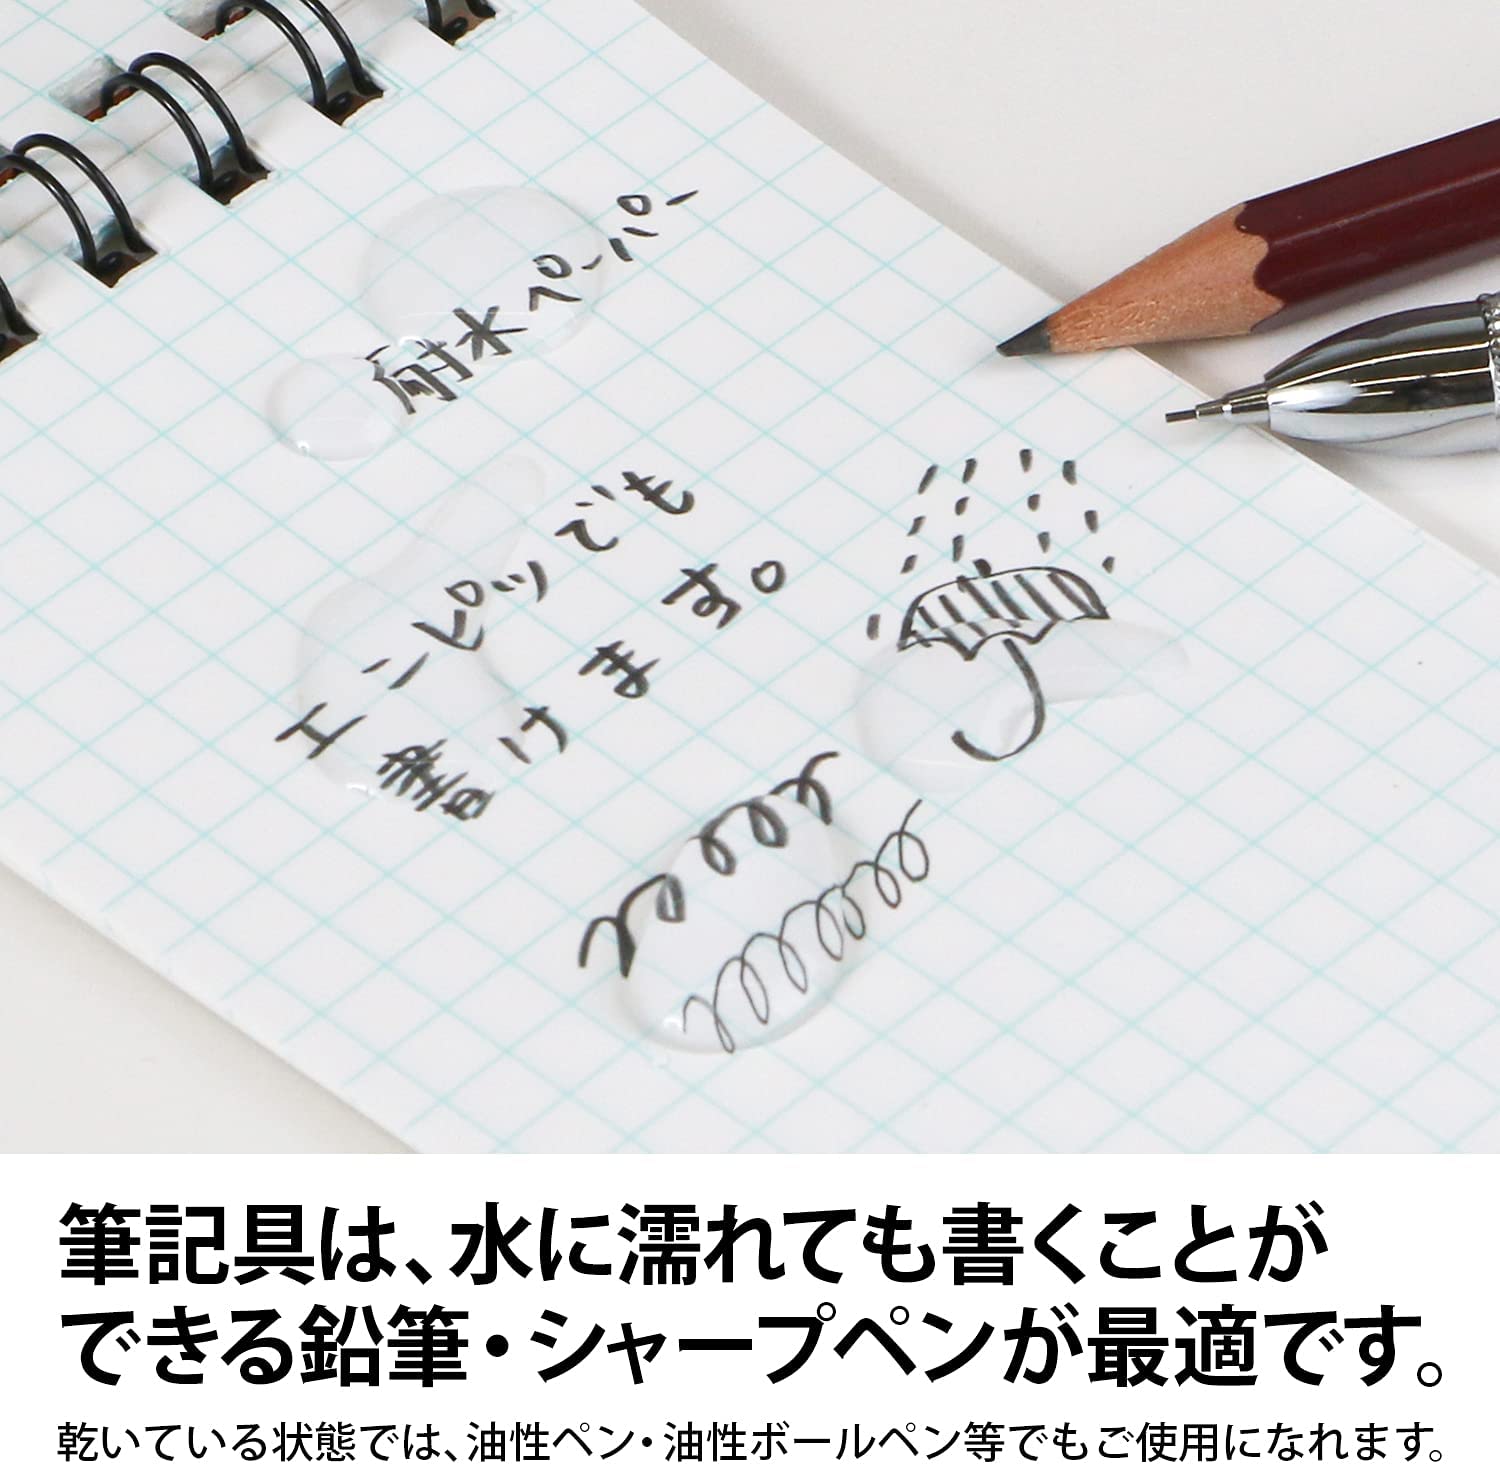 耐水ペーパー
エンピツでも
書けます。
筆記具は、水に濡れても書くことが
できる鉛筆・シャープペンが最適です。
乾いている状態では、油性ペン・油性ボールペン等でもご使用になれます。